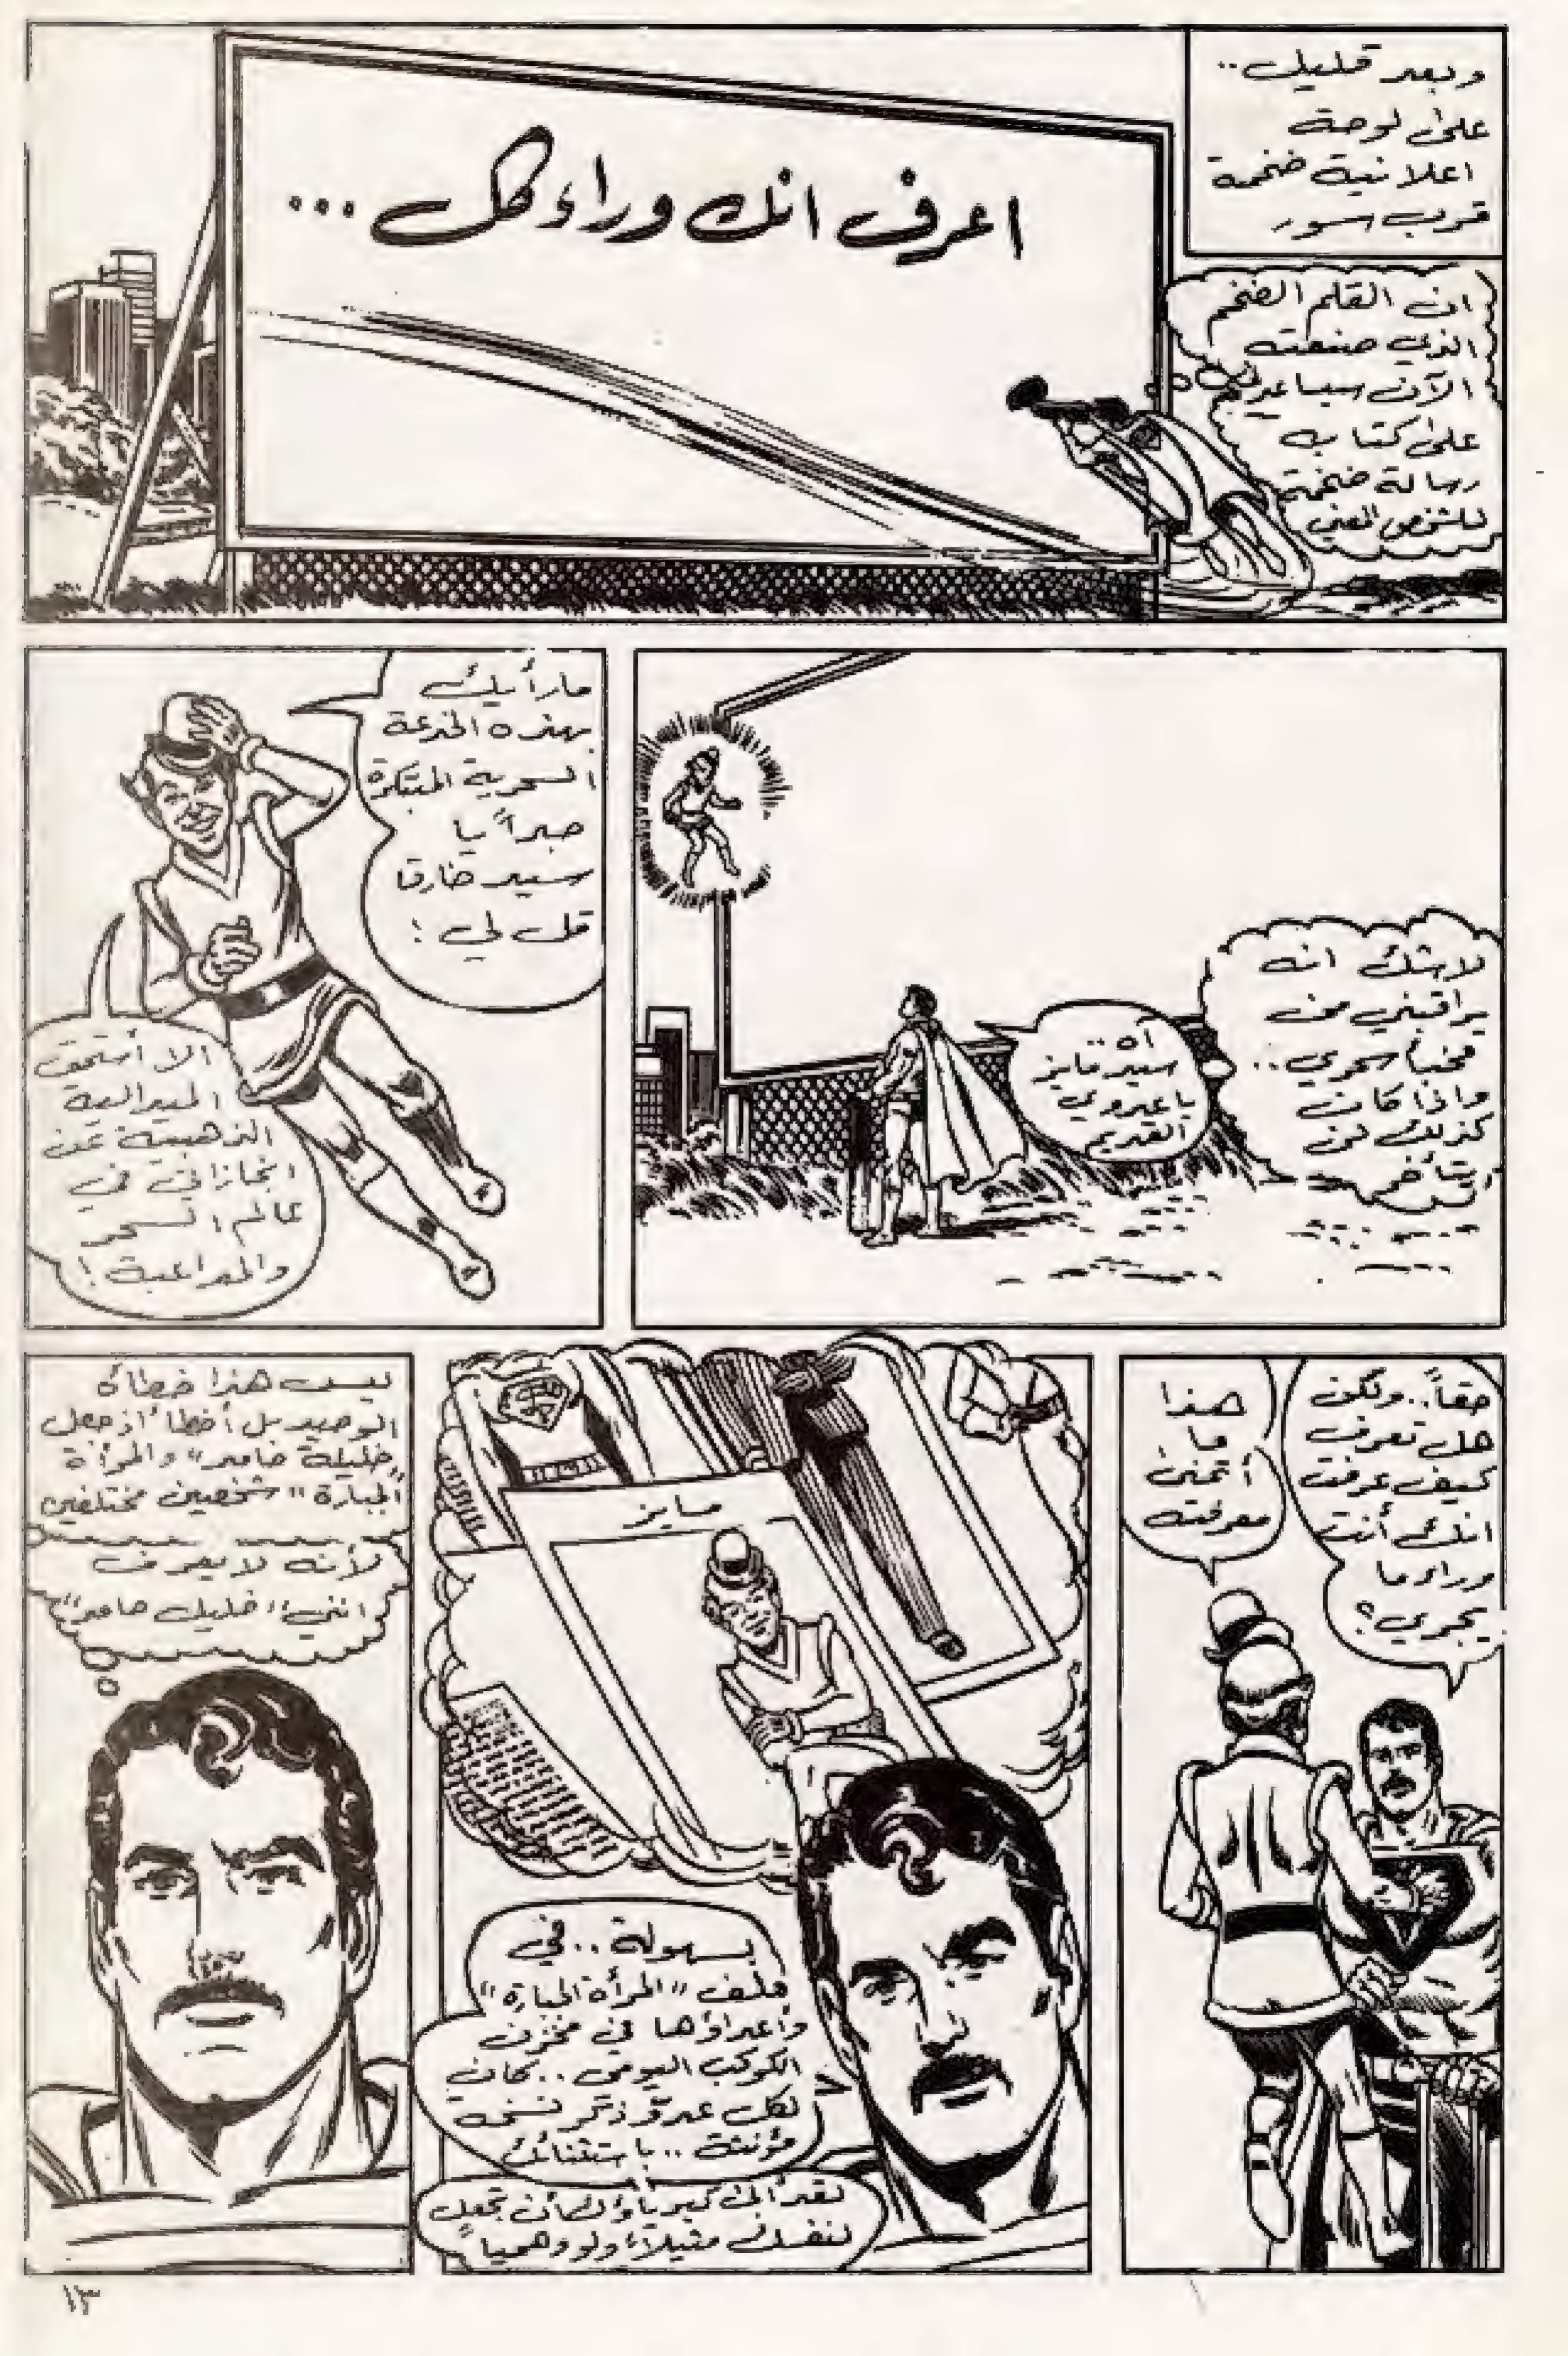 وبعد قليل..
على لوحة
اعلانية ضخمة
قرب سور
ان القلم الضخم
الذي صنعته
الآن سيساعدني
على كتابة
رسالة ضخمة
للشخص المعني
اعرف انك وراء كل ...
لاشك انه
يراقبني من
مخبأ سحري..
واذا كان
كذلك لن
يتأخر
آه..
سيد مايز
يا عدوي
القديم
ما رأيك
بهذه الخدعة
السحرية المبتكرة
جداً يا
سيد خارق
قل لي!
الا أستحق
الميدالية
الذهبية عن
انجازاتي في
عالم السحر
والمداعبة!
حقاً.. ولكن
هل تعرف
كيف عرفت
انك أنت
وراء ما
يجري؟
هذا
ما
أتمنى
معرفته
مايز
بسهولة.. في
ملف "المرأة الجبارة"
وأعداؤها في مخزن
الكوكب اليومي.. كان
لكل عدو ذكر نسخة
مؤنثة.. باستثنائك
لقد أبى كبرياؤك أن تجعل
لنفسك مثيلاً ولو وهمياً
ليس هذا خطأه
الوحيد بل أخطأ إذ جعل
"خليلة ضامر" والمرأة
الجبارة" شخصين مختلفين
لأنه لا يعرف
انني "خليل ضامر"
١٣